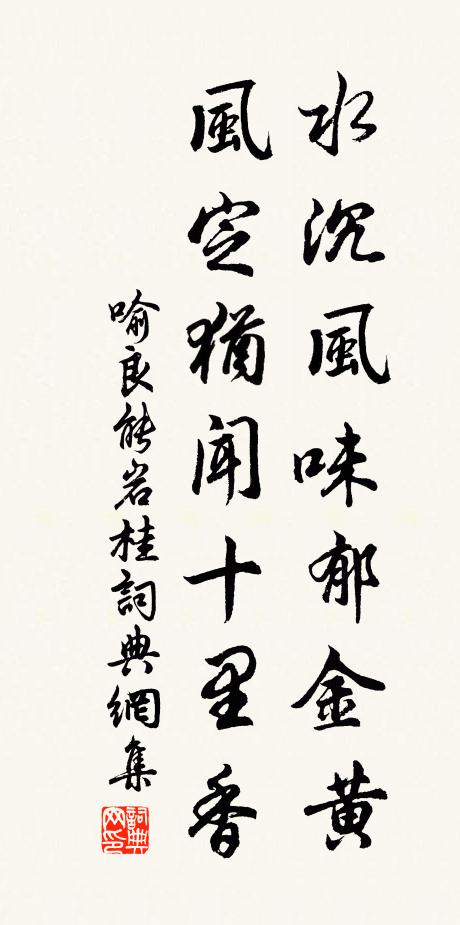 水沉風味郁金黃
風定猶聞十里香
喻良能岩桂詞典網集
詞典
网印